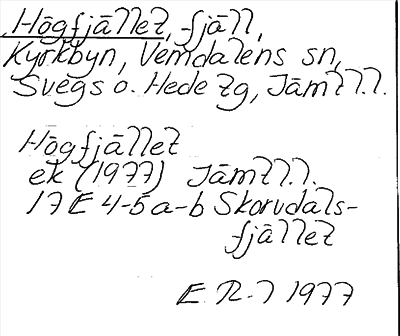 Högfjället, fjäll,
Kyrkbyn, Vemdalens sn,
Svegs o. Hede tg, Jämtl.l.
Högfjället
ek (1977) Jämtl.l.
17E 4-5 a-b Skorvdals-
fjället
E. R-l 1977